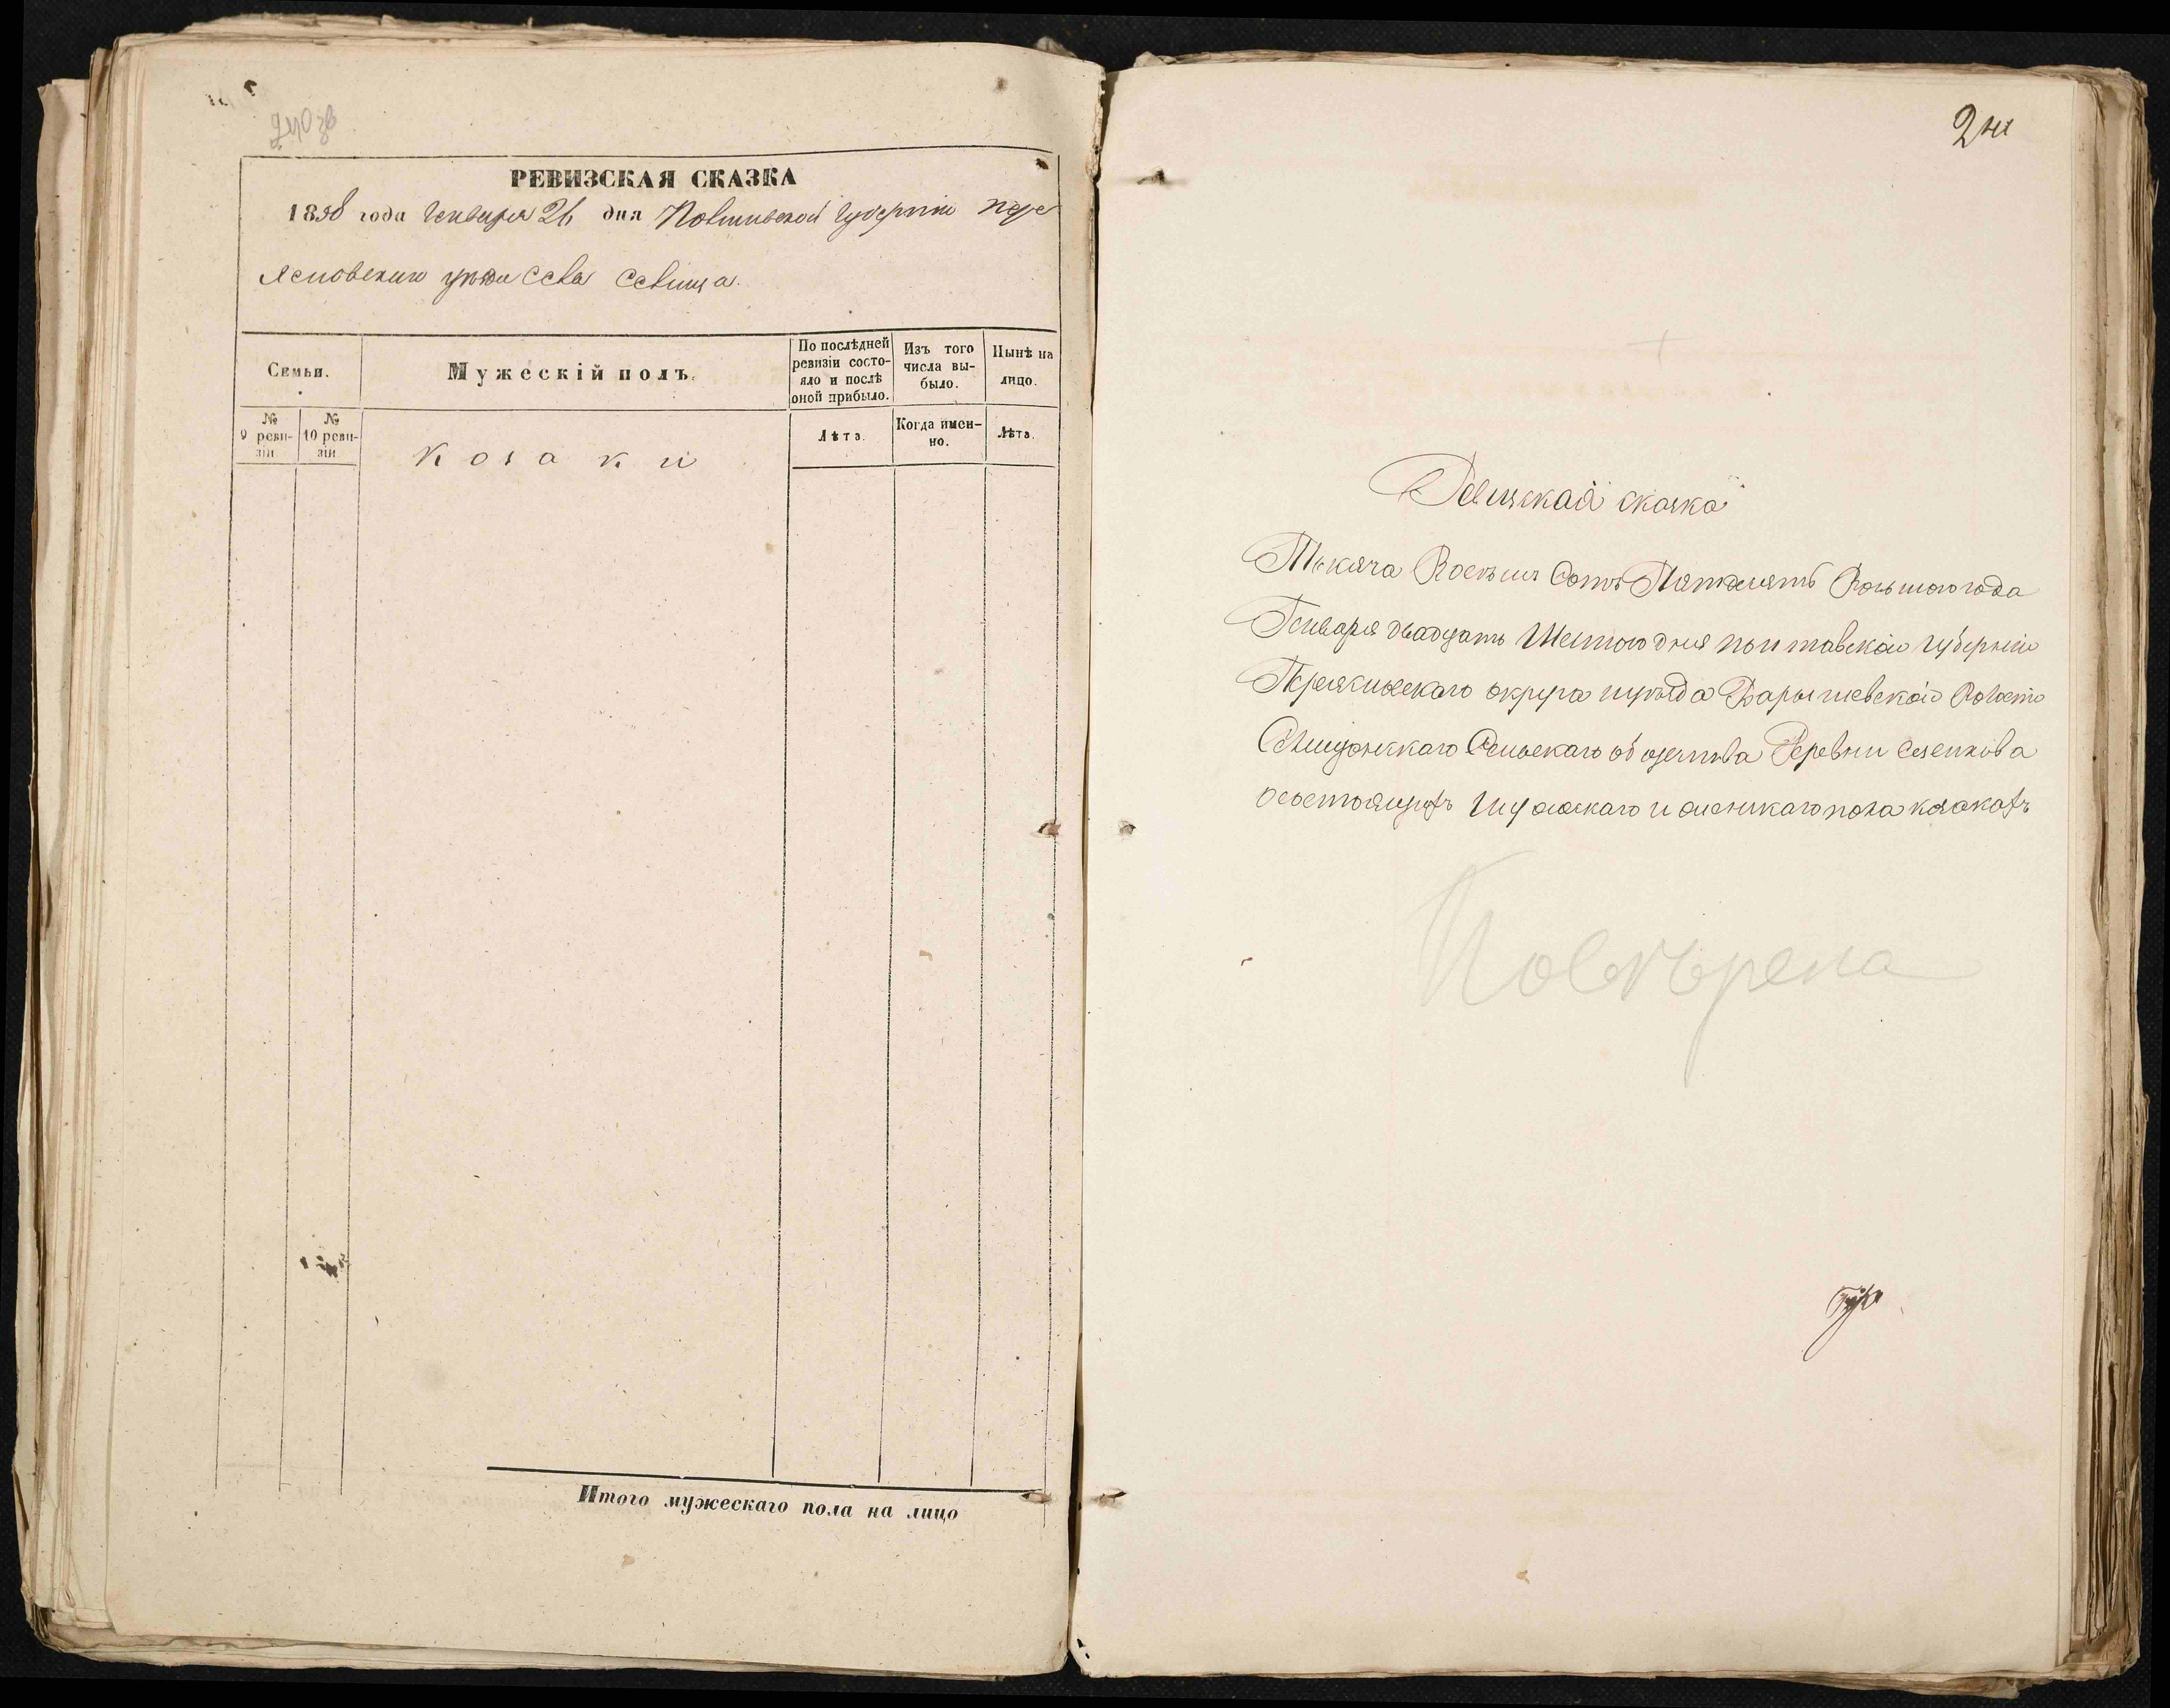 РЕВИЗСКАЯ СКАЗКА
1858 года Генваря 26 дня Полтавской Губернiи Пере
яславскаго уѣзда Села Селища.
Семьи.
Мужескiй полъ.
По послѣдней ревизiи состо-
яло и послѣ оной прибыло.
Изъ того числа вы-
было.
Нынѣ на лицо.
№ 9 реви-
зiи
№ 10 реви-
зiи
Козаки
Лѣта.
Когда имен-
но.
Лѣта.
Итого мужескаго пола на лицо
Ревизская сказка
Тысяча Восемь Сотъ Пятдесятъ Восьмого года
Генваря двадцать Шестого дня Полтавской Губернiи
Переяславскаго округа и уѣзда Барышевской Волости
Селищанскаго Сельскаго общества Деревни Сезенкова
о состоящихъ мужескаго и женскаго пола казакахъ
Повѣрена